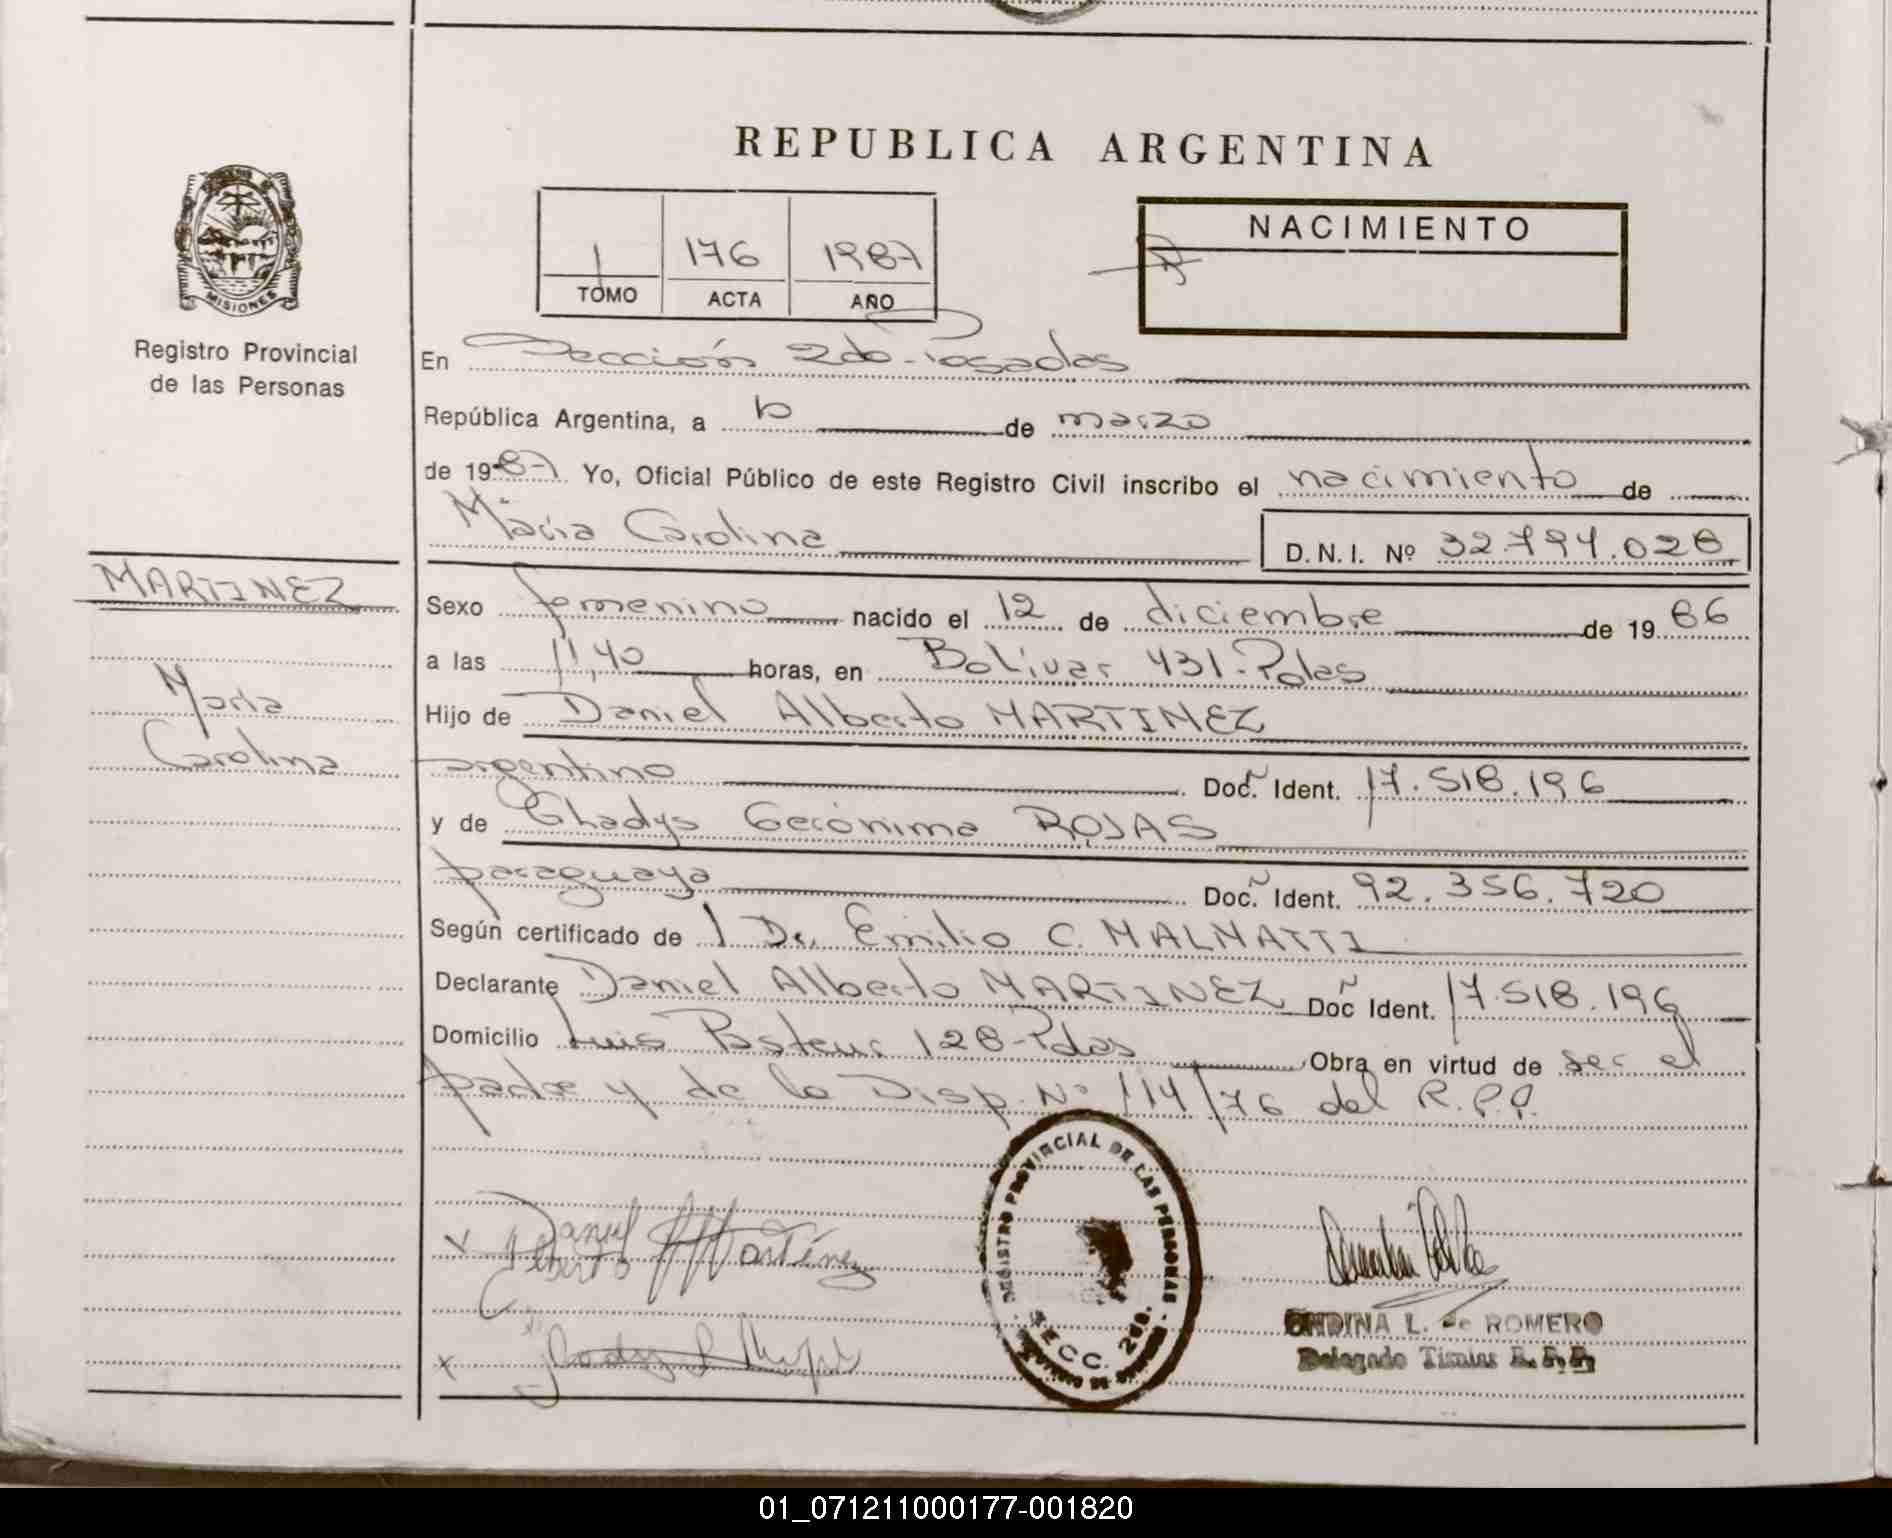 REPUBLICA ARGENTINA
1 176 1987
TOMO ACTA AÑO
NACIMIENTO
MISIONES
Registro Provincial
de las Personas
En Sección 2da-Posadas
República Argentina, a 10 de marzo
de 1987 Yo, Oficial Público de este Registro Civil inscribo el nacimiento de
María Carolina D.N.I. Nº 32.794.028
MARTINEZ
María
Carolina
Sexo femenino nacido el 12 de diciembre de 1986
a las 11,40 horas, en Bolívar 431-Pdas
Hijo de Daniel Alberto MARTINEZ
argentino Doc. Ident. 17.518.196
y de Ghadys Gerónima ROJAS
paraguaya Doc. Ident. 92.356.720
Según certificado de l Dr. Emilio C. MALMATTI
Declarante Daniel Alberto MARTINEZ Doc Ident. 17.518.196
Domicilio Luis Pasteur 128-Pdas Obra en virtud de ser el
padre y de la Disp. Nº 114/76 del R.P.P.
Daniel
Alberto Martínez
REGISTRO PROVINCIAL DE LAS PERSONAS
SECC. 2da.
ONDINA L. de ROMERO
Delegado Titular R.P.P.
01_071211000177-001820